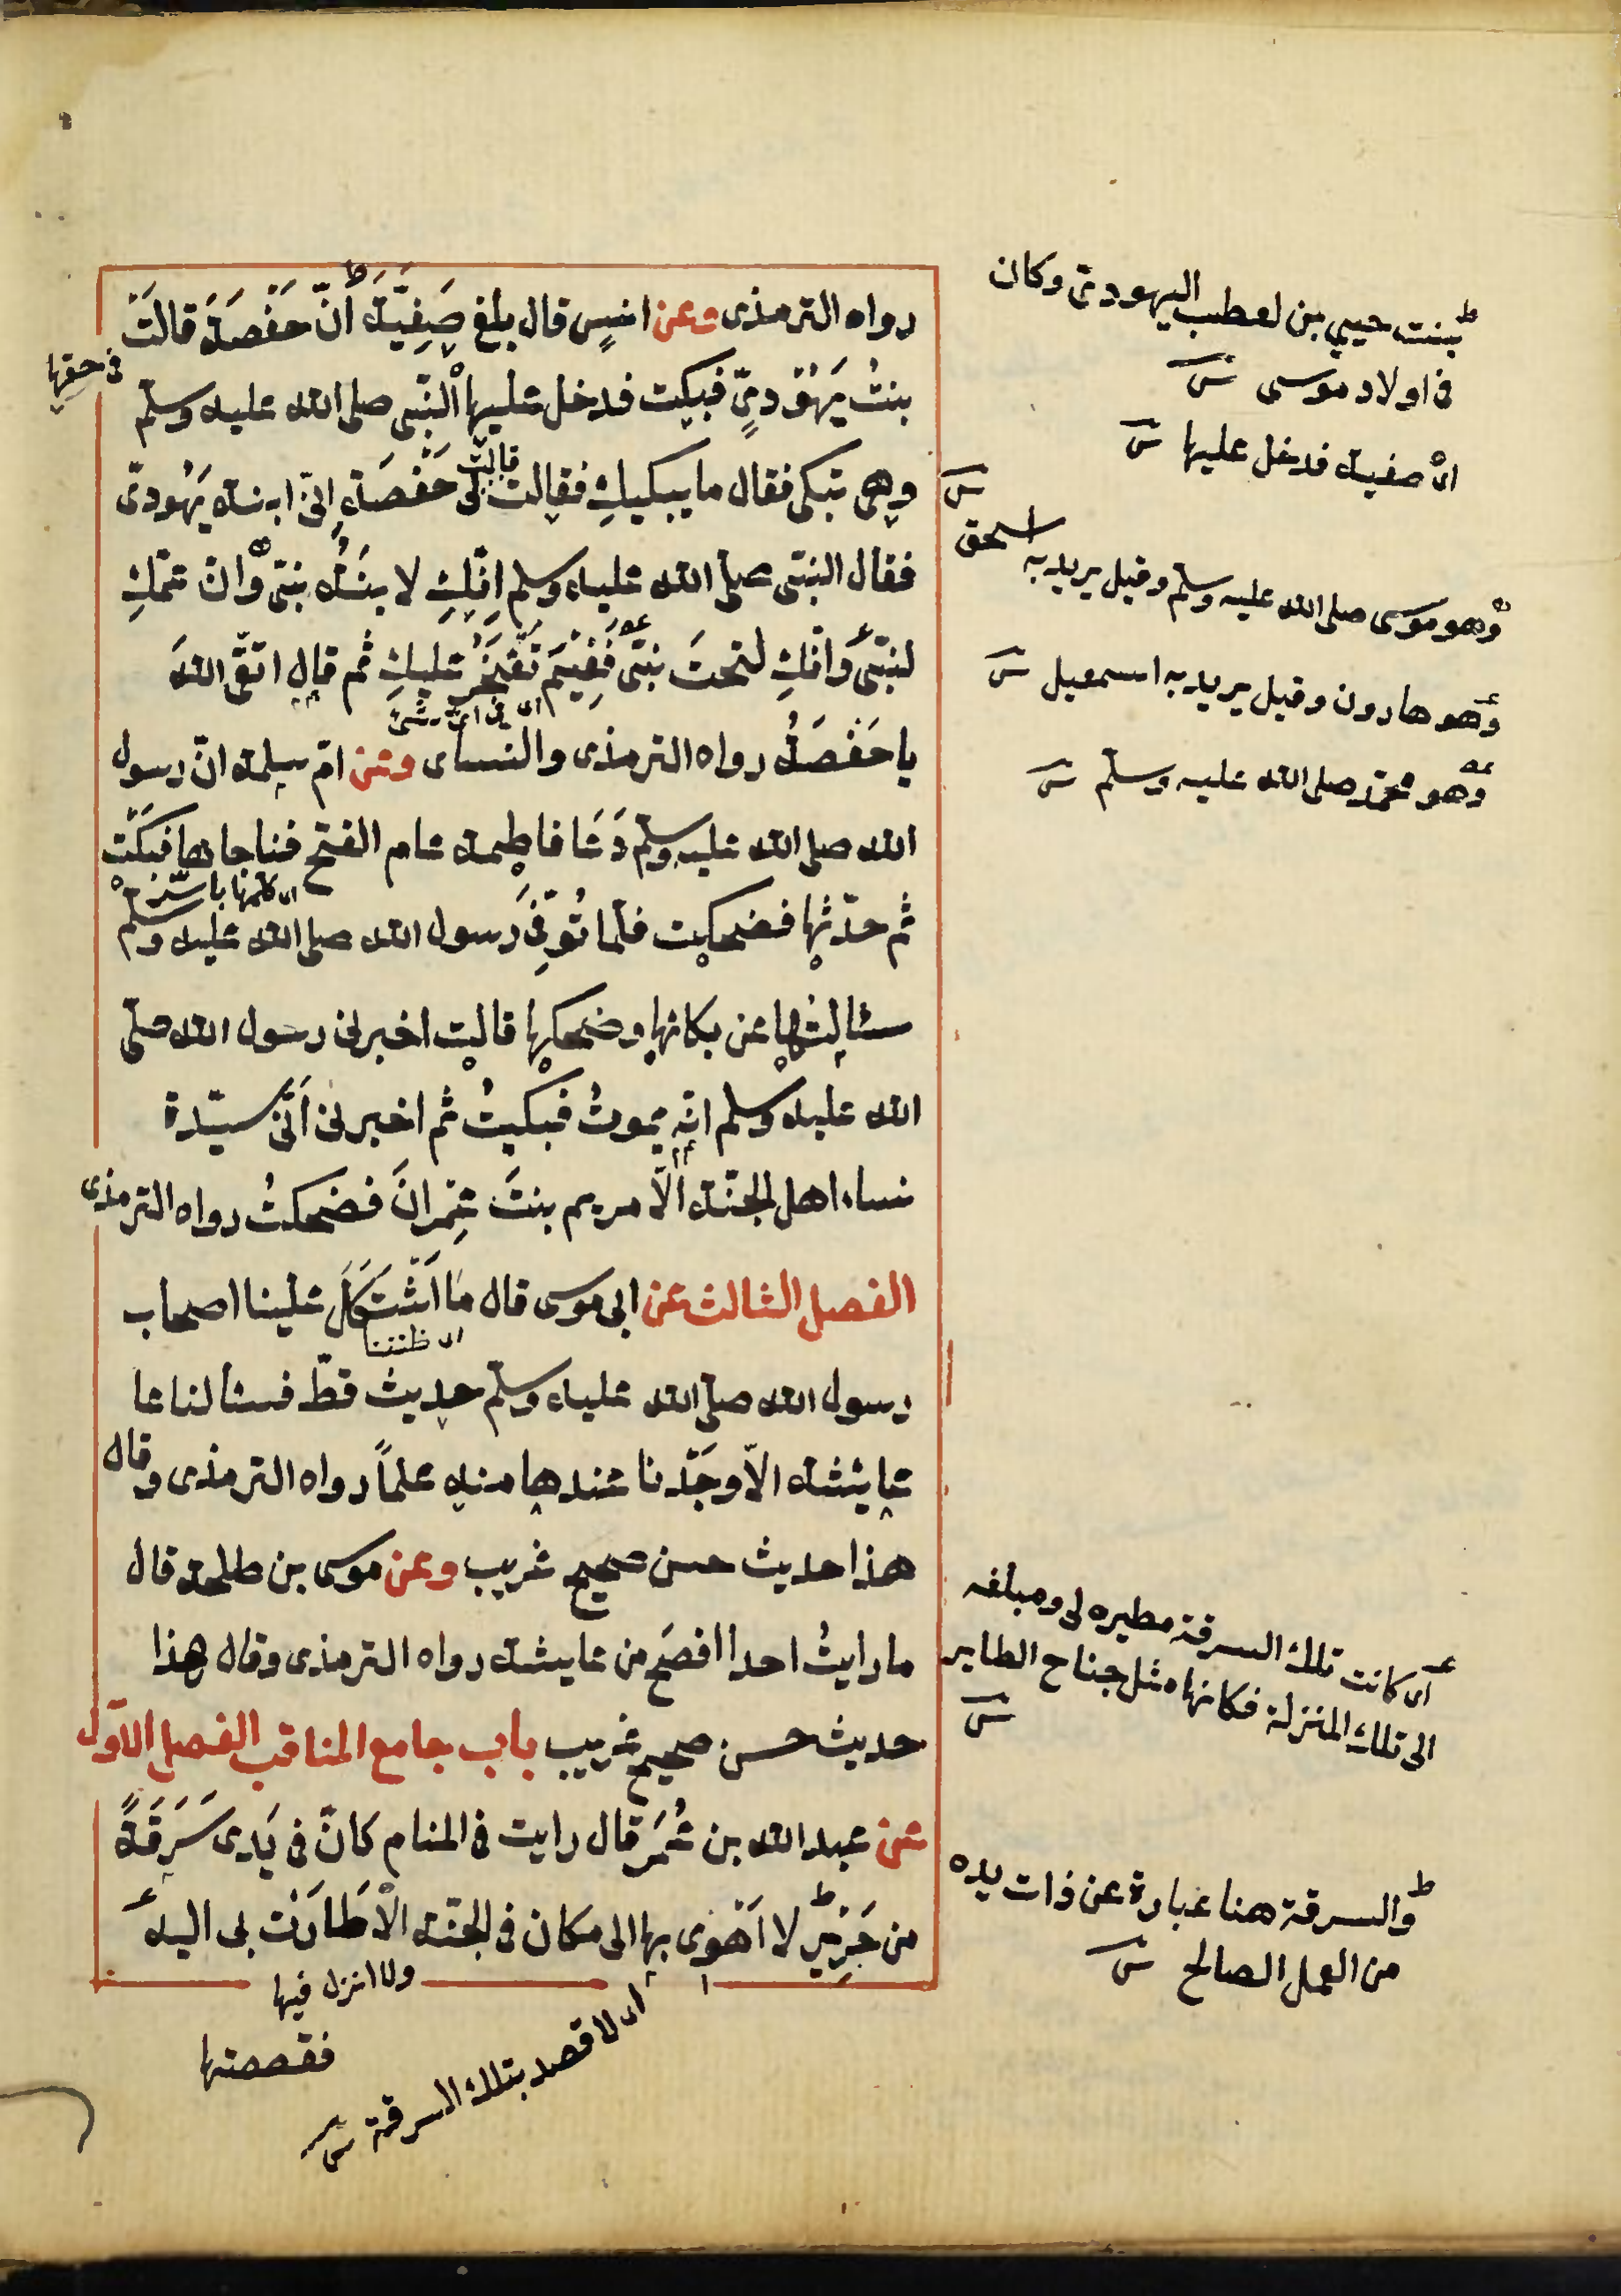 رواه الترمذى وعن انسٍ قال بلغ صَفِيَّةَ اَنَّ حَفْصَةَ قالَتْ
فى حقها
بنتُ يَهُوْدىٍّ فبكت فدخل عليها النّبى صلى الله عليه وسلّم
وهى تبكى فقال ما يبكيكِ فقالت لى حَفْصَةُ اِنّى ابنة يَهُودىّ
قالت
فقال النبىّ صلى الله عليه وسلم اِنّكِ لابنَةُ نبىّ وانّ عمّكِ
لنبىّ وانّكِ لتحتَ نبىّ فَفِيْمَ تَفْخَرُ عليكِ ثم قال اتقى اللهَ
اى فى اىّ شئ
يا حَفْصَةُ رواه الترمذى والنساى وعن امّ سلمة انّ رسول
الله صلى الله عليه وسلّم دَعَا فاطمة عام الفتح فناجاها فبكَتْ
اى كلمها بالسّر
ثم حدّثها فضحكت فلما تُوُفّىَ رسول الله صلى الله عليه وسلّم
سئالتها عن بكائها وضحكها قالت اخبرنى رسول الله صلّى
الله عليه وسلم انّه يموتُ فبكيتُ ثم اخبرنى اَنّى سيّدة
نساء اهل الجنّة الّا مريم بنتَ عِمْرانَ فضحكتُ رواه الترمذى
الفصل الثالث عن ابى موسى قال مَا اَشْتَكَلَ علينا اصحاب
رسول الله صلى الله عليه وسلّم حديث قطّ فسئالنا عا
عايشة الّا وجَدْنا عندها منه علماً رواه الترمذى وقال
هذا حديث حسن صحيح غريب وعن موسى بن طلحة قال
ما رايتُ احدا افصَح من عايشة رواه الترمذى وقال هذا
حديث حسن صحيح غريب باب جامع المناقب الفصل الاوّل
عن عبد الله بن عُمَر قال رايت فى المنام كانّ فى يَدِى سَرَقَةً
من حَرِيْرٍ لا اَهْوِى بها الى مكان فى الجنّة الّا طَارَتْ بى اليه
ولا انزل فيها
اى لا قصد بتلك السرقة
فقصصتها
بنت حيى بن لعطب اليهودى وكان
فى اولاد موسى
اى صفية فدخل عليها
وهو موسى صلى الله عليه وسلّم وقيل يريد به اسحق
وهو هارون وقيل يريد به اسمعيل
وهو محمّد صلى الله عليه وسلّم
اى كانت تلك السرقة مطيره لى ومبلغه
الى تلك المنزلة فكانها مثل جناح الطاير
والسرقة هنا عبارة عن ذات يده
من العمل الصالح